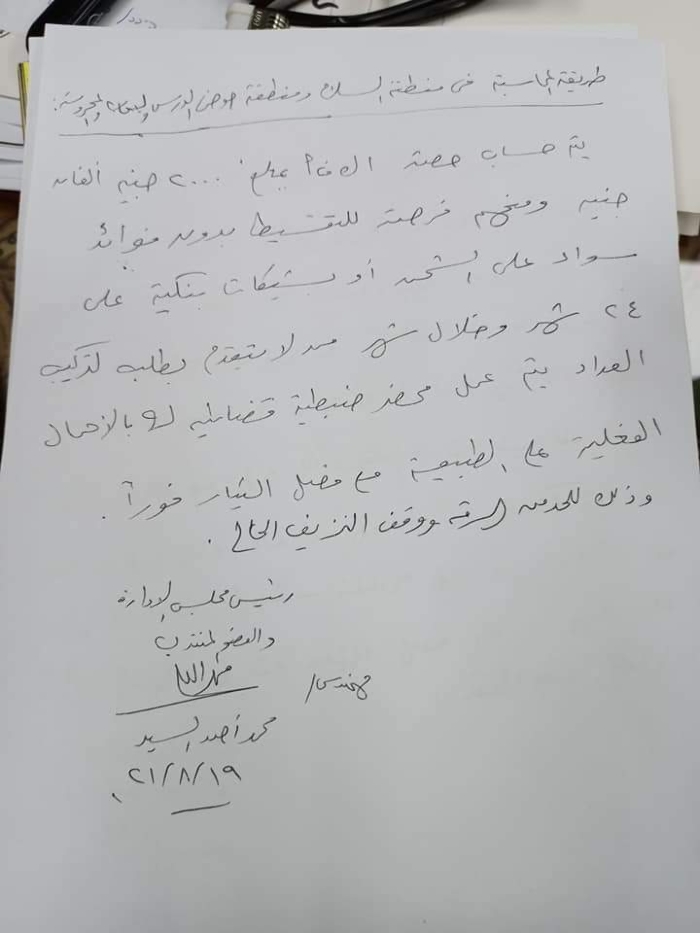 طريقة المحاسبة فى منطقة السلام ومنطقة حوض الدرس والبيطاش والمحروسة:
يتم حساب حصة ال ك.ف.أ بمبلغ ٢٠٠٠ جنيه ألفان
جنيه ومنحهم فرصة للتقسيط بدون فوائد
سواء على الشحن أو بشيكات بنكية على
٢٤ شهر وخلال شهر من لا يتقدم بطلب لتركيب
العداد يتم عمل محضر ضبطية قضائية له بالأحمال
الفعلية على الطبيعة مع فصل التيار فوراً.
وذلك للحد من السرقة ووقف النزيف الحالى.
رئيس مجلس الإدارة
والعضو المنتدب
مهندس/
محمد أحمد السيد
٢١/٨/١٩